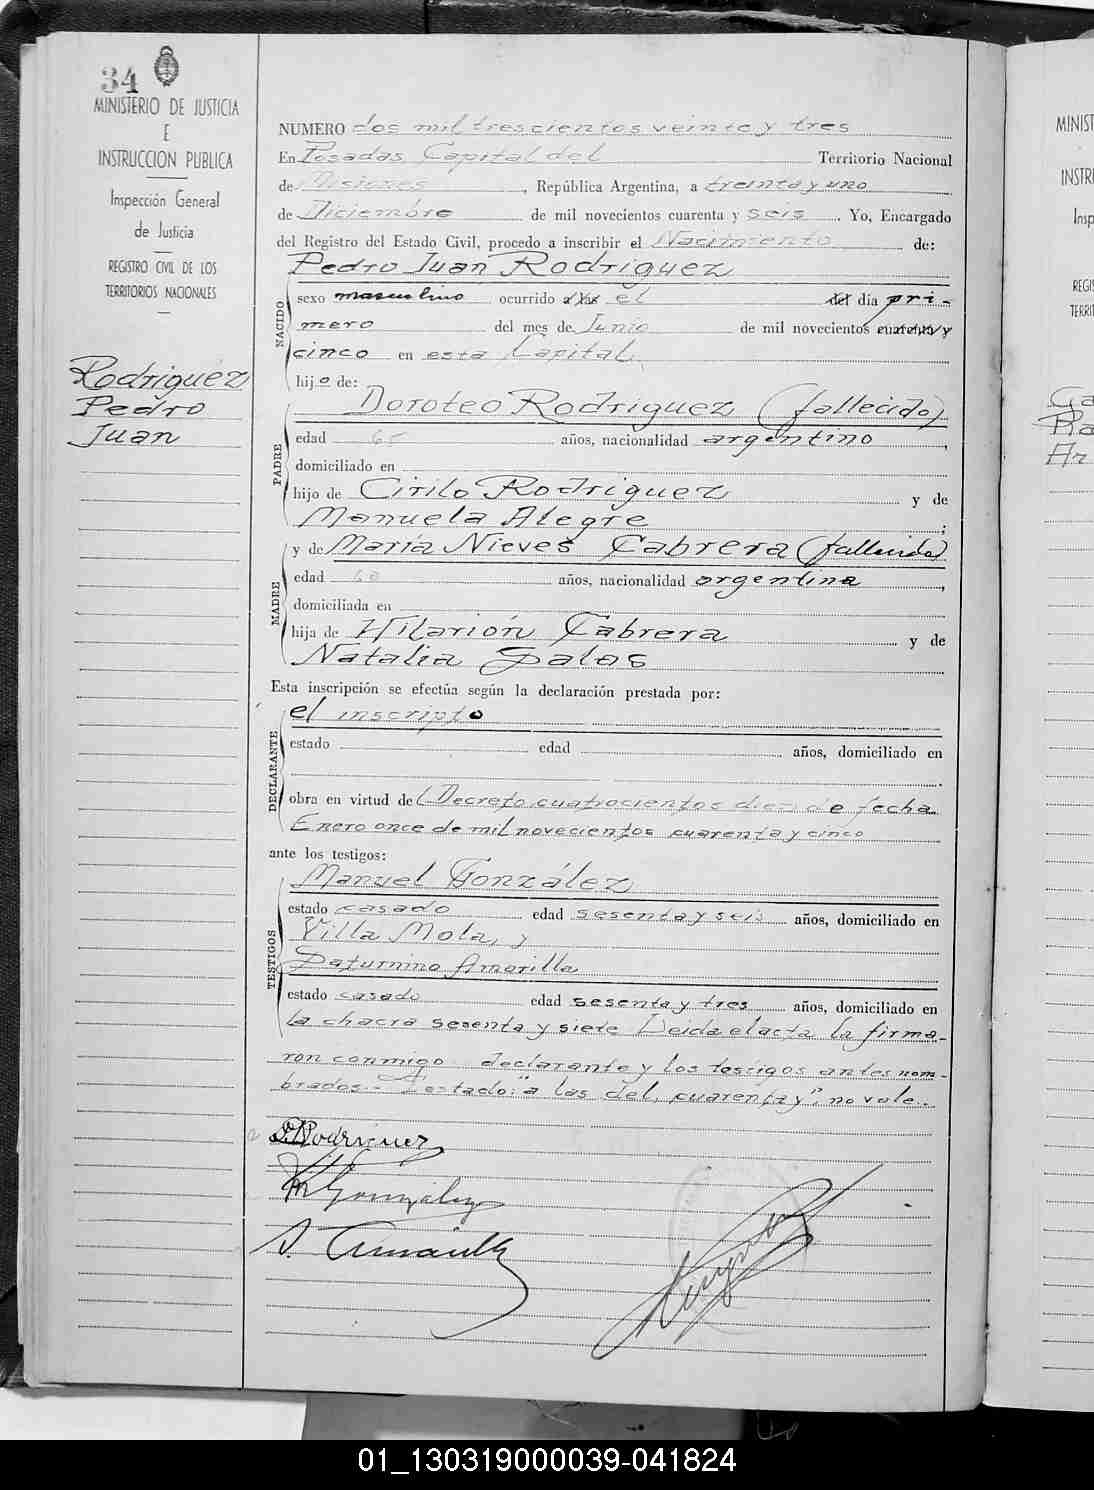 34
MINISTERIO DE JUSTICIA
E
INSTRUCCION PUBLICA
Inspección General
de Justicia
REGISTRO CIVIL DE LOS
TERRITORIOS NACIONALES
Rodriguez
Pedro
Juan
NUMERO dos mil trescientos veinte y tres
En Posadas Capital del Territorio Nacional
de Misiones, República Argentina, a treinta y uno
de Diciembre de mil novecientos cuarenta y seis. Yo, Encargado
del Registro del Estado Civil, procedo a inscribir el Nacimiento de:
Pedro Juan Rodriguez
NACIDO
sexo masculino ocurrido a las el del día pri-
mero del mes de Junio de mil novecientos cuarenta y
cinco en esta Capital,
hijo de:
Doroteo Rodriguez (fallecido)
PADRE
edad 65 años, nacionalidad argentino,
domiciliado en
hijo de Cirilo Rodriguez y de
Manuela Alegre;
y de María Nieves Cabrera (fallecida)
MADRE
edad 60 años, nacionalidad argentina,
domiciliada en
hija de Hilarión Cabrera y de
Natalia Salas
Esta inscripción se efectúa según la declaración prestada por:
el inscripto
DECLARANTE
estado edad años, domiciliado en
obra en virtud del Decreto cuatrocientos diez de fecha
Enero once de mil novecientos cuarenta y cinco
ante los testigos:
Manuel González
TESTIGOS
estado casado edad sesenta y seis años, domiciliado en
Villa Mola, y
Saturnino Amarilla
estado casado edad sesenta y tres años, domiciliado en
la chacra sesenta y siete Leida el acta la firma-
ron conmigo declarante y los testigos antes nom-
brados.- Testado: "a las del, cuarenta y": no vale.
P. Rodriguez
M Gonzalez
S. Amarilla
MINIST
INSTR
Insp
REGIS
TERRI
Ga
Ar
01_130319000039-041824